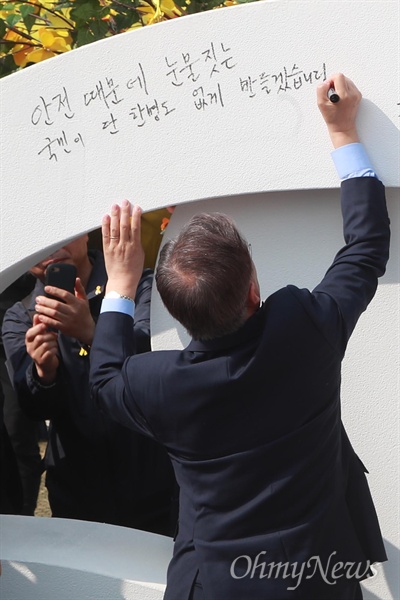 안전 때문에 눈물짓는
국민이 단 한명도 없게 만들겠습니다
OhmyNews